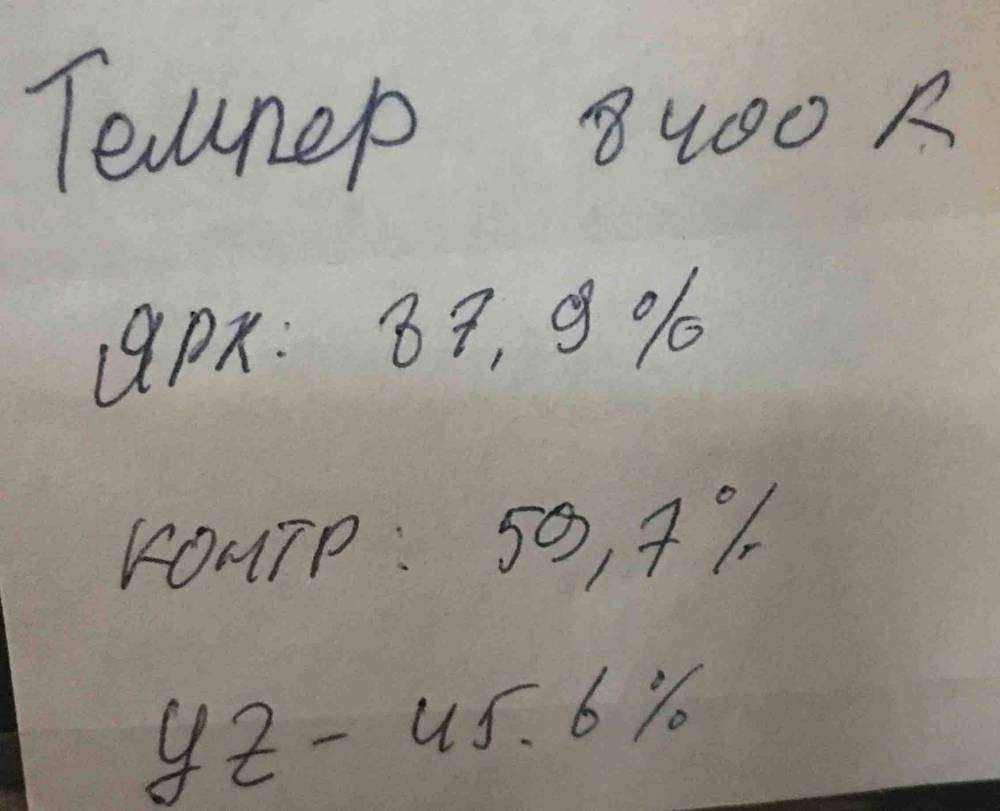 Темпер 8400 К
ЯРК: 87,9%
КОНТР: 59,7%
УZ - 45.6%